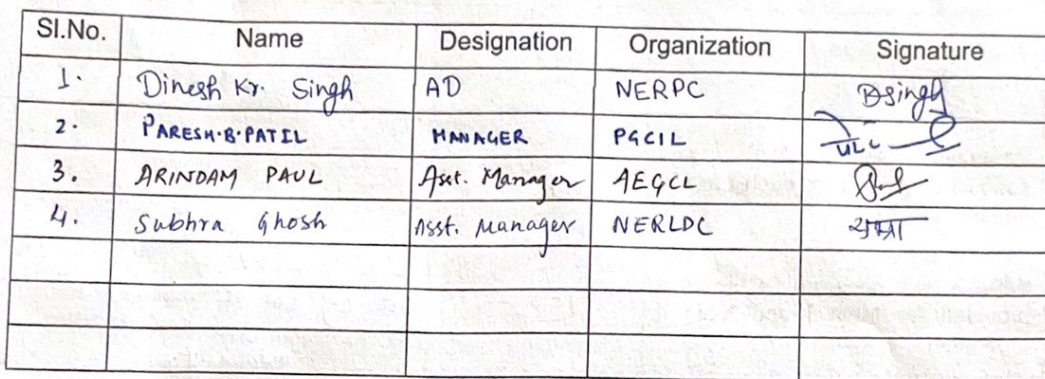 Sl.No. Name Designation Organization Signature
1. Dinesh Kr. Singh AD NERPC Dsingh
2. PARESH.B.PATIL MANAGER PGCIL
3. ARINDAM PAUL Asst. Manager AEGCL
4. Subhra Ghosh Asst. Manager NERLDC